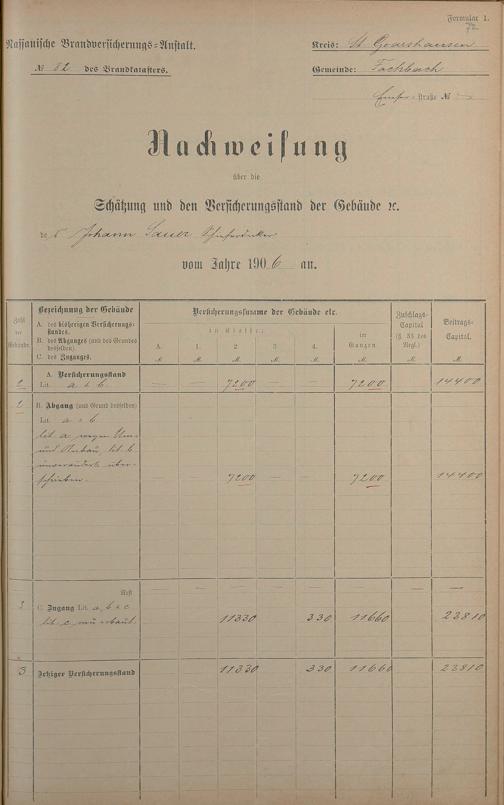 Formular 1.
72
Nassauische Brandversicherungs-Anstalt.
Kreis: St Goarshausen
№ 82 des Brandkatasters.
Gemeinde: Fachbach
Emser-straße №
Nachweisung
über die
Schätzung und den Versicherungsstand der Gebäude ꝛc.
des Johann Sauer
vom Jahre 1906 an.
Zahl der Gebäude.
Bezeichnung der Gebäude
A. des bisherigen Versicherungs-
standes.
B. des Abganges (und des Grundes
desselben).
C. des Zuganges.
Versicherungssumme der Gebäude etc.
in Klasse:
A. 1. 2 3 4. im Ganzen
M. M. M. M. M. M.
Zuschlags-
Capital
(§ 33 des
Regl.)
M.
Beitrags-
Capital.
M.
A. Versicherungsstand
2 Lit. a & b — — 7200 — — 7200 — 14400
2 B. Abgang (und Grund desselben)
Lit. a & b
lit. a wegen Um-
und Neubau, lit. b
unverändert über-
schrieben. — — 7200 — — 7200 — 14400
Rest — — — — — — — —
3 C. Zugang Lit. a, b & c
lit. c neu erbaut. 11330 330 11660 23810
3 Jetziger Versicherungsstand 11330 330 11660 23810